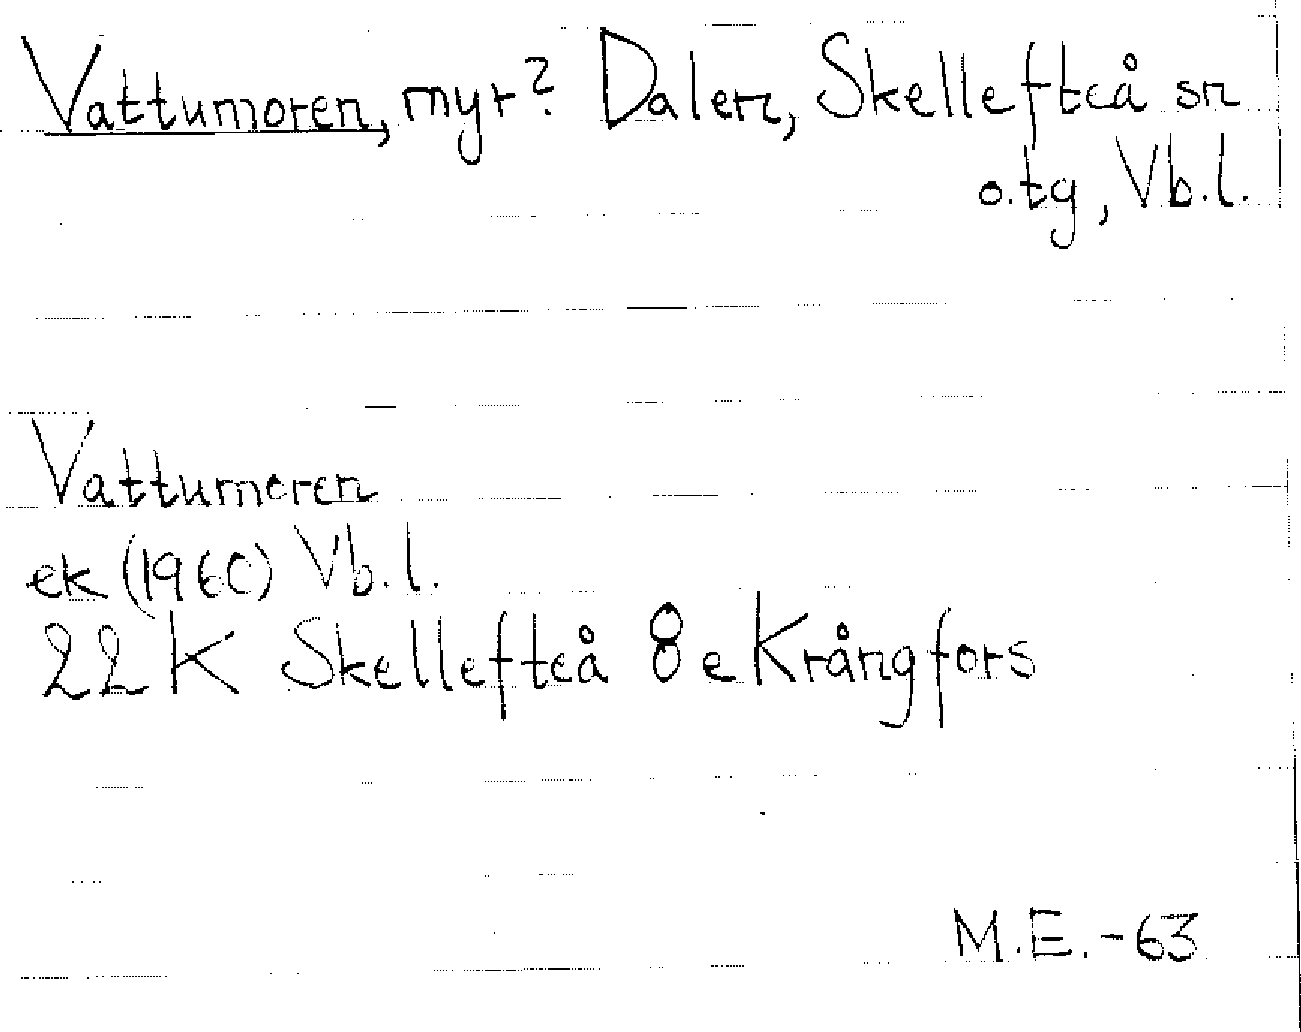 Vattumoren, myr? Dalen, Skellefteå sn
o.tg, Vb.l.
Vattumoren
ek (1960) Vb.l.
22 K Skellefteå 8 e Krångfors
M.E.-63